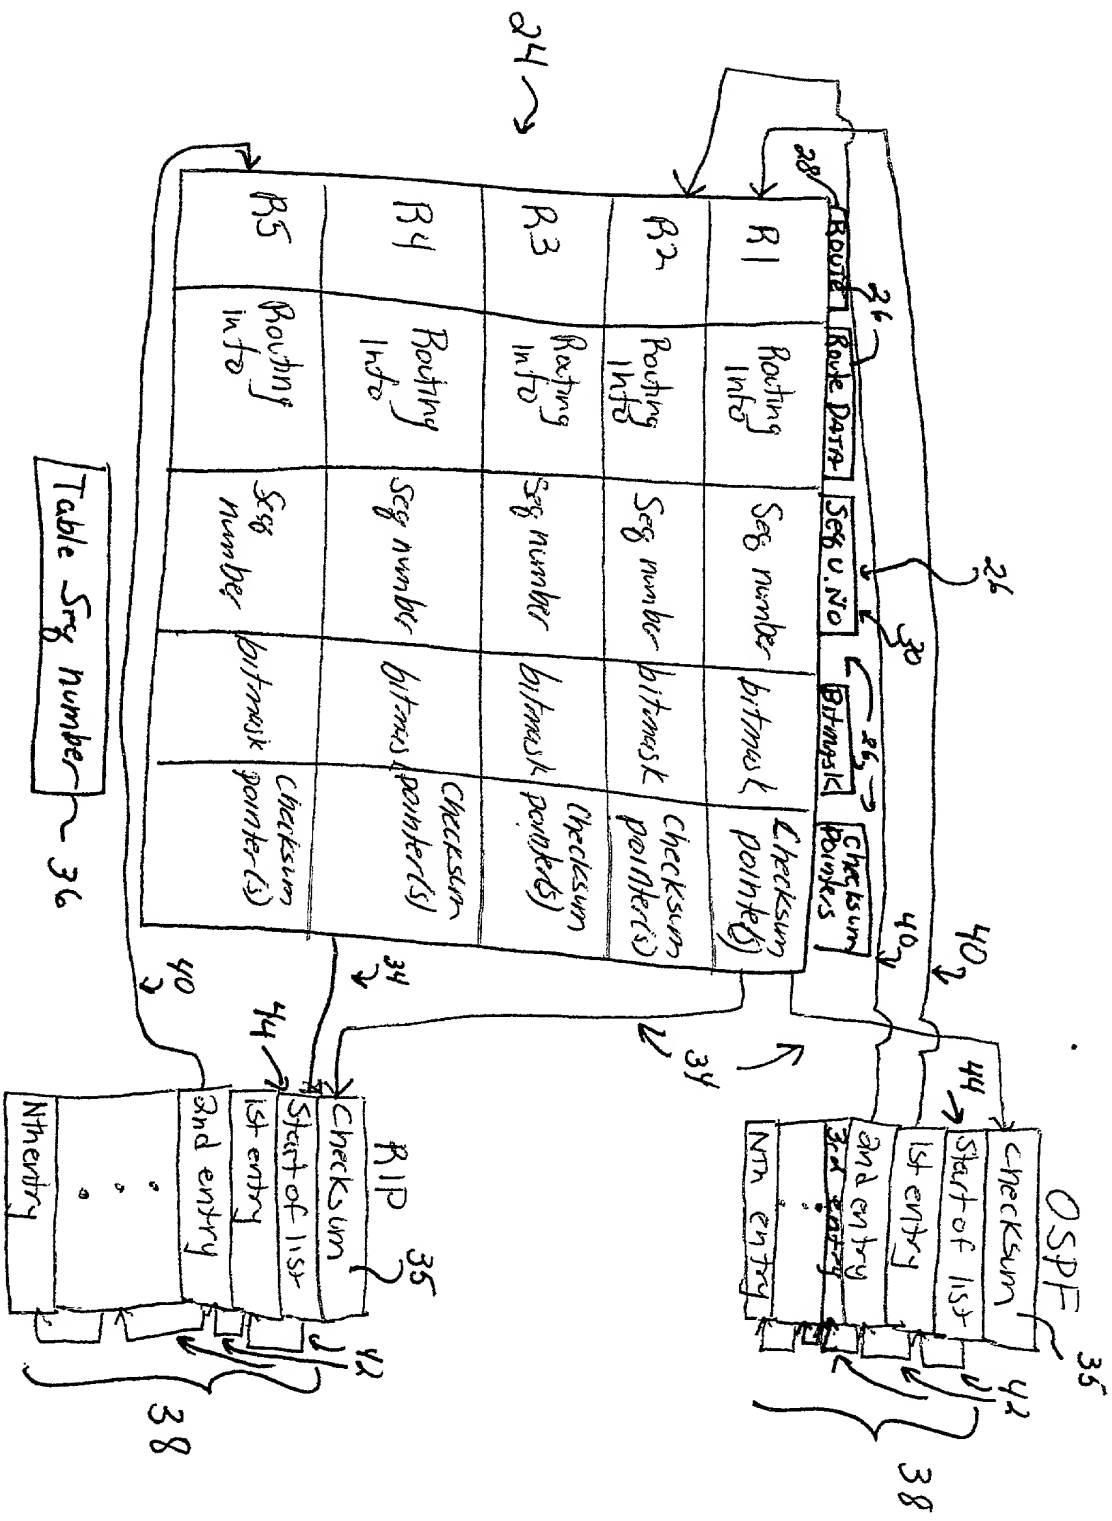 24
28
26
26
30
26
40
40
ROUTE
Route DATA
Seq U. No
Bitmask
Checksum
pointers
R1
Routing
Info
Seq number
bitmask
Checksum
pointer(s)
R2
Routing
Info
Seq number
bitmask
Checksum
pointer(s)
R3
Routing
Info
Seq number
bitmask
Checksum
pointer(s)
R4
Routing
Info
Seq number
bitmask
Checksum
pointer(s)
R5
Routing
info
Seq
number
bitmask
Checksum
pointer(s)
Table Seq number
36
34
34
40
OSPF
35
44
Checksum
Start of list
1st entry
2nd entry
3rd entry
Nth entry
42
38
RIP
35
44
Checksum
Start of list
1st entry
2nd entry
Nth entry
42
38